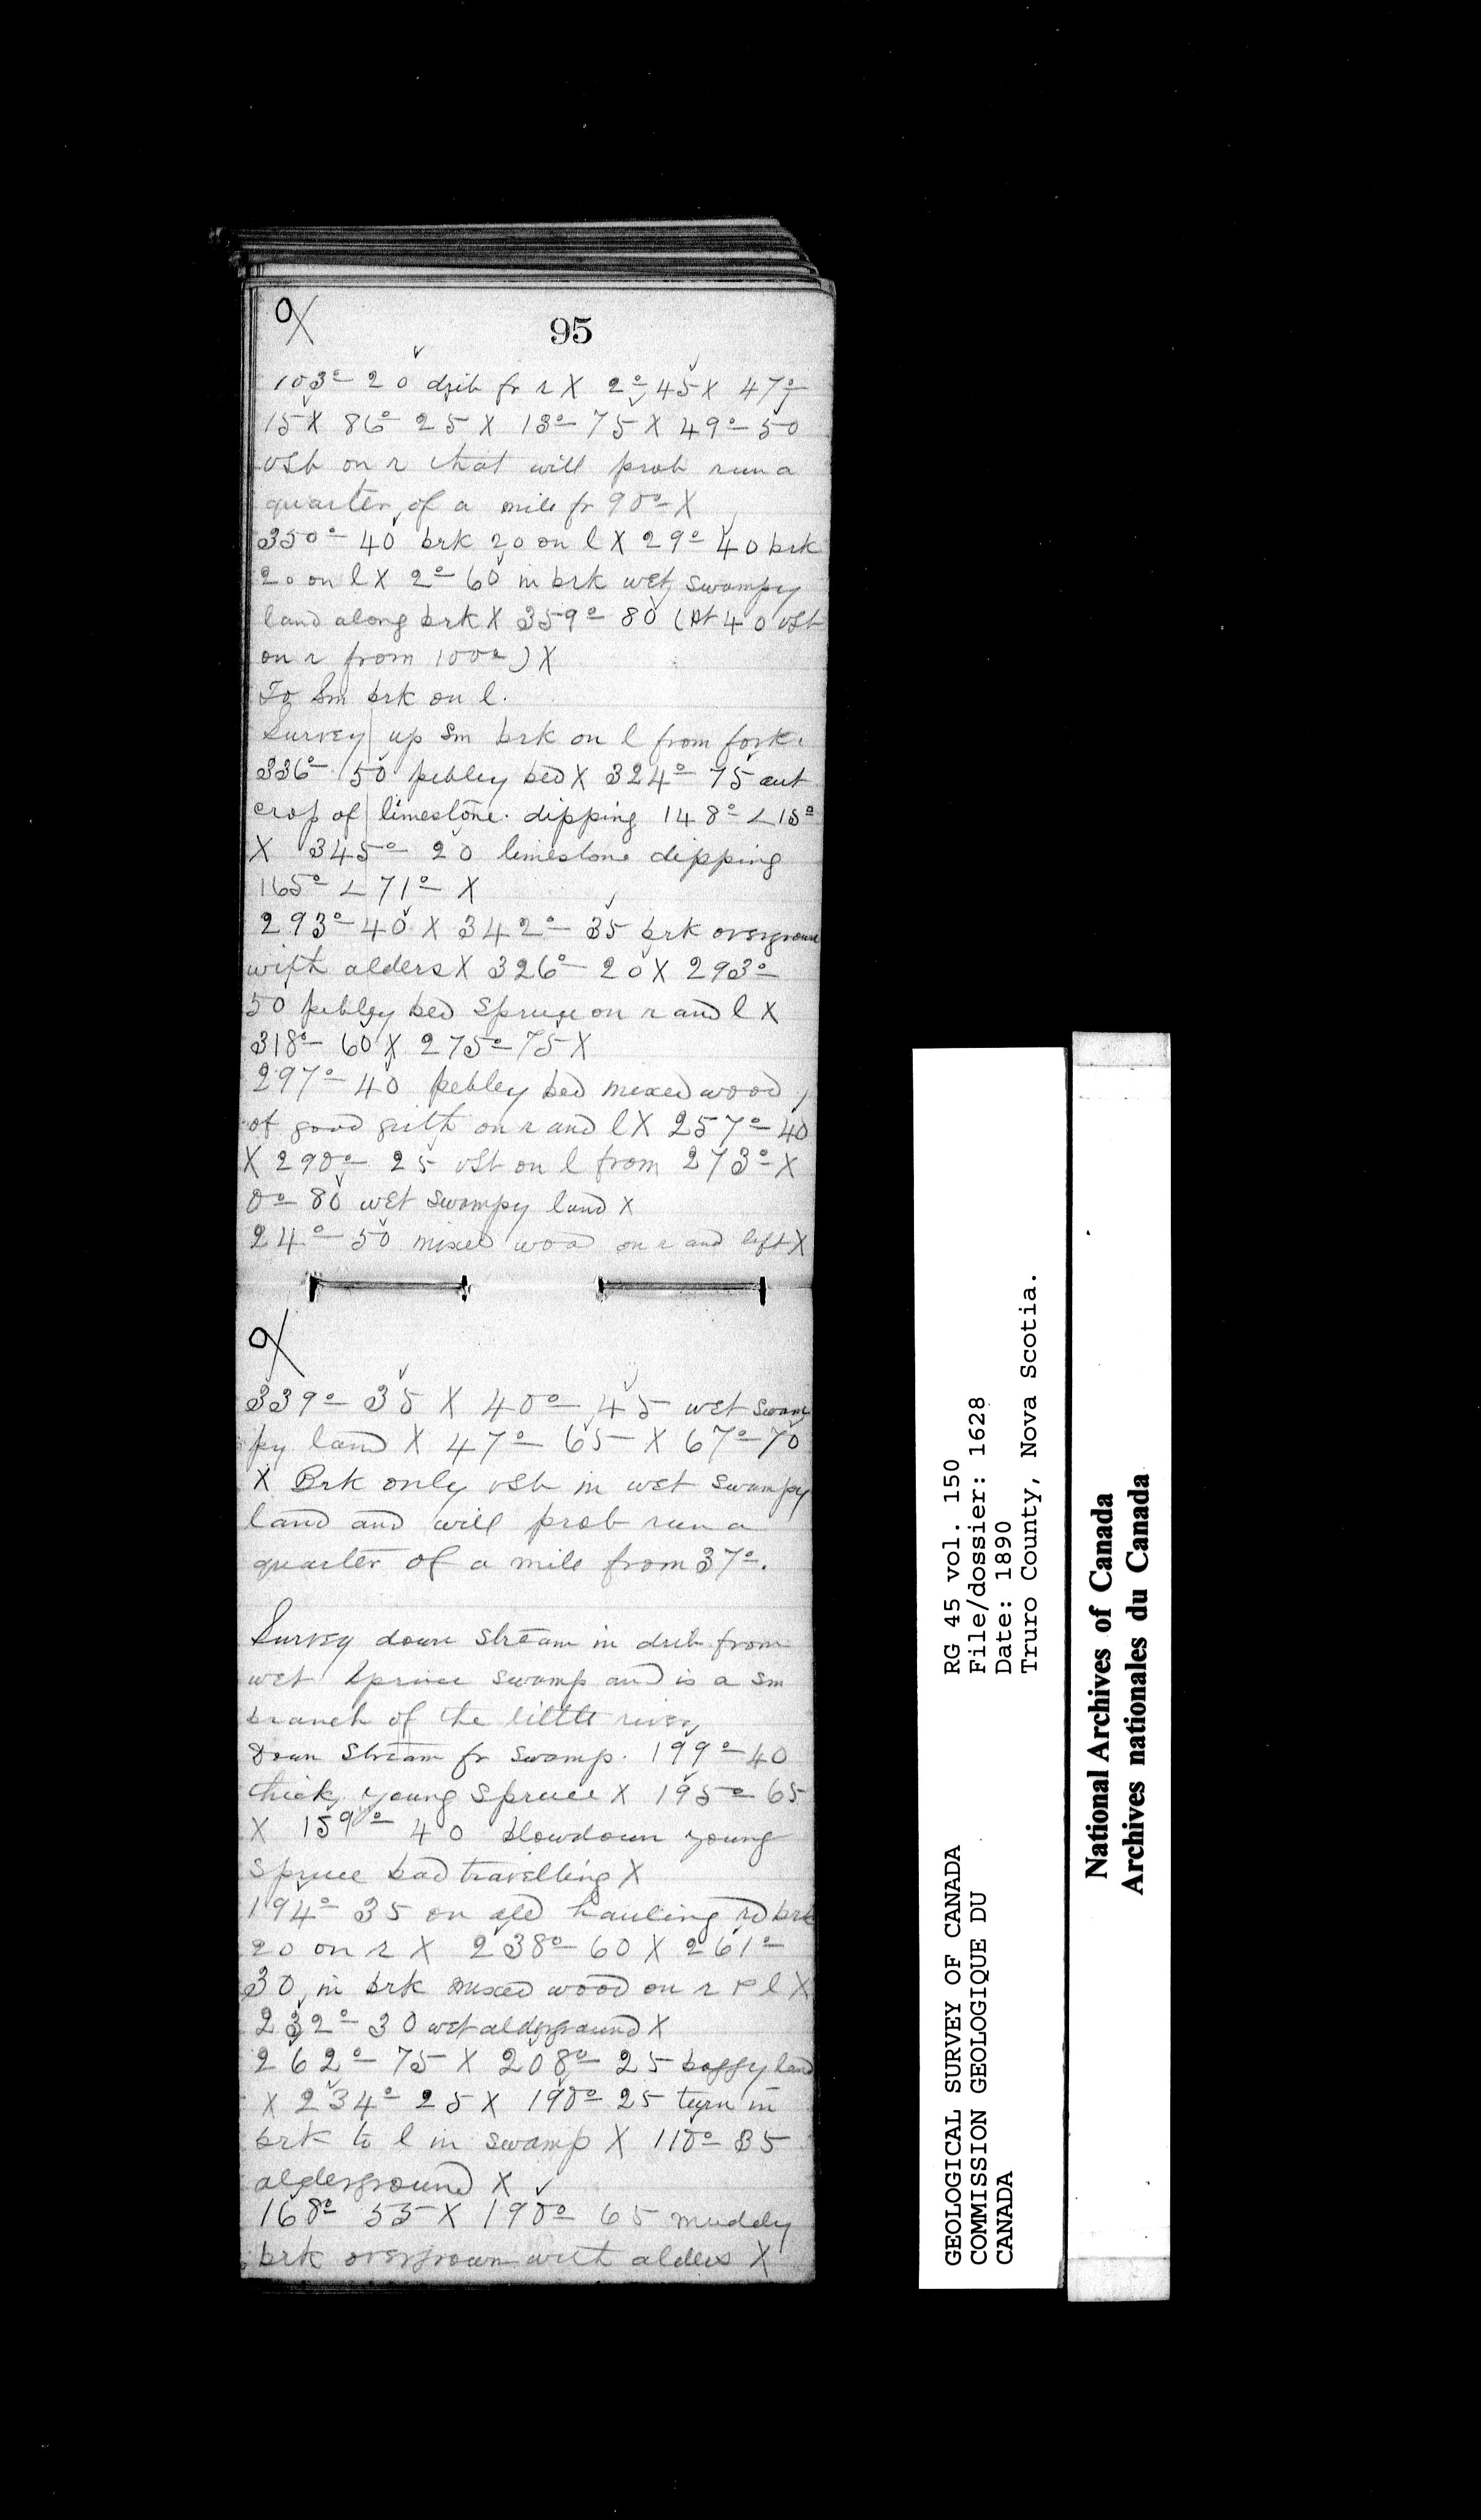 95
103° 20 drib fr r X 2° 45 X 47°
15 X 86° 25 X 13° 75 X 49° 50
vsb on r that will prob run a
quarter of a mile fr 90° X
350° 40 brk 20 on l X 29° 40 brk
20 on l X 2° 60 in brk wet swampy
land along brk X 359° 80 (At 40 vsb
on r from 100°) X
To Sm brk on l.
Survey up Sm brk on l from fork.
336° 50 pebley bed X 324° 75 out
crop of limestone. dipping 148° ∠15°
X 345° 20 limestone dipping
165° ∠ 71° X
293° 40 X 342° 35 brk overgrown
with alders X 326° 20 X 293°
50 pebley bed Spruce on r and l X
318° 60 X 275° 75 X
297° 40 pebley bed mixed wood
of good grith on r and l X 257° 40
X 290° 25 vsb on l from 273° X
0° 80 wet swampy land X
24° 50 mixed wood on r and left X
339° 35 X 40° 45 wet swam
py land X 47° 65 X 67° 70
X Brk only vsb in wet swampy
land and will prob run a
quarter of a mile from 37°.
Survey down Stream in drib from
wet Spruce swamp and is a sm
branch of the little river,
Down Stream fr Swamp. 199° 40
thick young Spruce X 195° 65
X 159° 40 blowdown young
Spruce bad travelling X
194° 35 on old hauling rd brk
20 on r X 238° 60 X 261°
30 in brk mixed wood on r & l X
232° 30 wet alderground X
262° 75 X 208° 25 boggy land
X 234° 25 X 190° 25 turn in
brk to l in swamp X 110° 35
alderground X
168° 55 X 190° 65 muddy
brk overgrown with alders X
GEOLOGICAL SURVEY OF CANADA
COMMISSION GEOLOGIQUE DU
CANADA
RG 45 vol. 150
File/dossier: 1628
Date: 1890
Truro County, Nova Scotia.
National Archives of Canada
Archives nationales du Canada